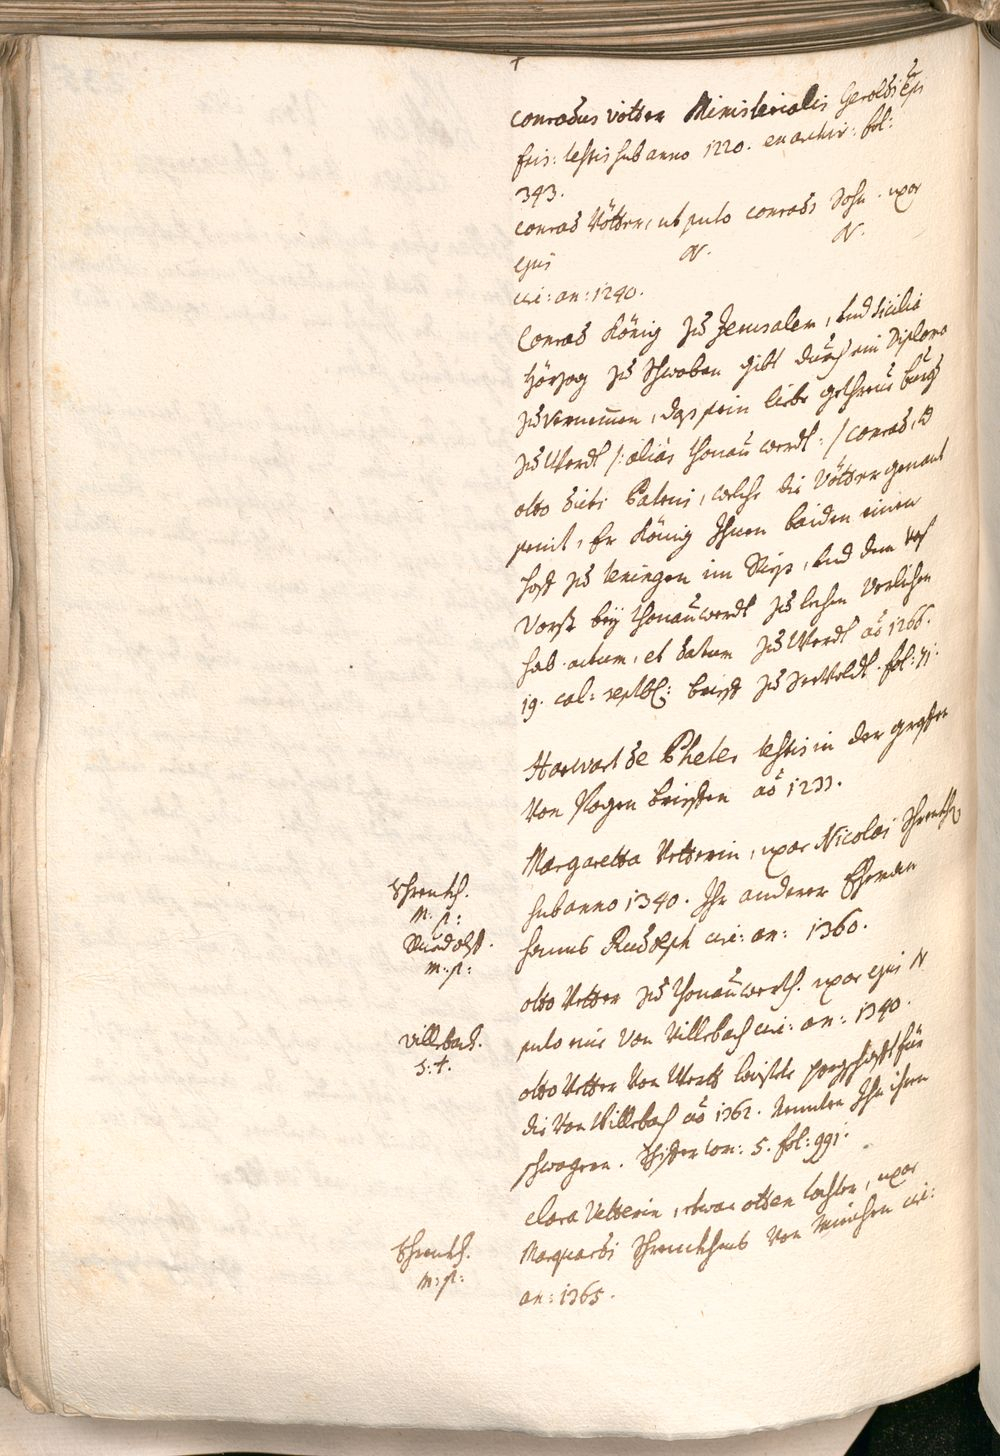 +
Conradus vötter Ministerialis Geroldi Epi
fris: testis sub anno 1220. ex archiv: fol:
343.
Conrad Vötter, ut puto Conrads Sohn. uxor
ejus N. N.
circ: an: 1240.
Conrad König zu Jerusalem, und Sicilia
Hörzog zu Schwaben gibt durch ein Diploma
zuvernemen, das sein liebe getreue burger
zu Werdt /: alias thonauwerdt :/ Conrad, und
otto dicti Patrui, welche die Vötter genant
seint, Er König Ihnen baiden einen
hoff zu teningen im Riess, und den
Vorst bey thonauwerdt zu lehen verlihen
hab. actum, et datum zu Werdt ao 1266.
19. cal: septbr: brieff zu fol: 71.
Harwart de Phetes testis in der graffen
von Bogen brieffen ao 1233.
Schrenkh.
m. p:
Rudolff.
m: p:
Margaretta Vetterin, uxor Nicolai Schrenkh
sub anno 1340. Ihr anderer Ehman
hanns Rudolph circ: an: 1360.
Villebach.
s: +.
otto Vetter zu thonauwerth. uxor ejus N
puto eine von Villebach circ: an: 1340.
otto Vetter von Werth laistete porgschafft für
die von Villebach ao 1362. nennten Ihn ihren
schwagern. tom: 5. fol: 991.
Schrenkh.
m: p:
Clara Vetterin, etwan otten tochter, uxor
Marquardi Schrenckhens von München circ:
an: 1365.